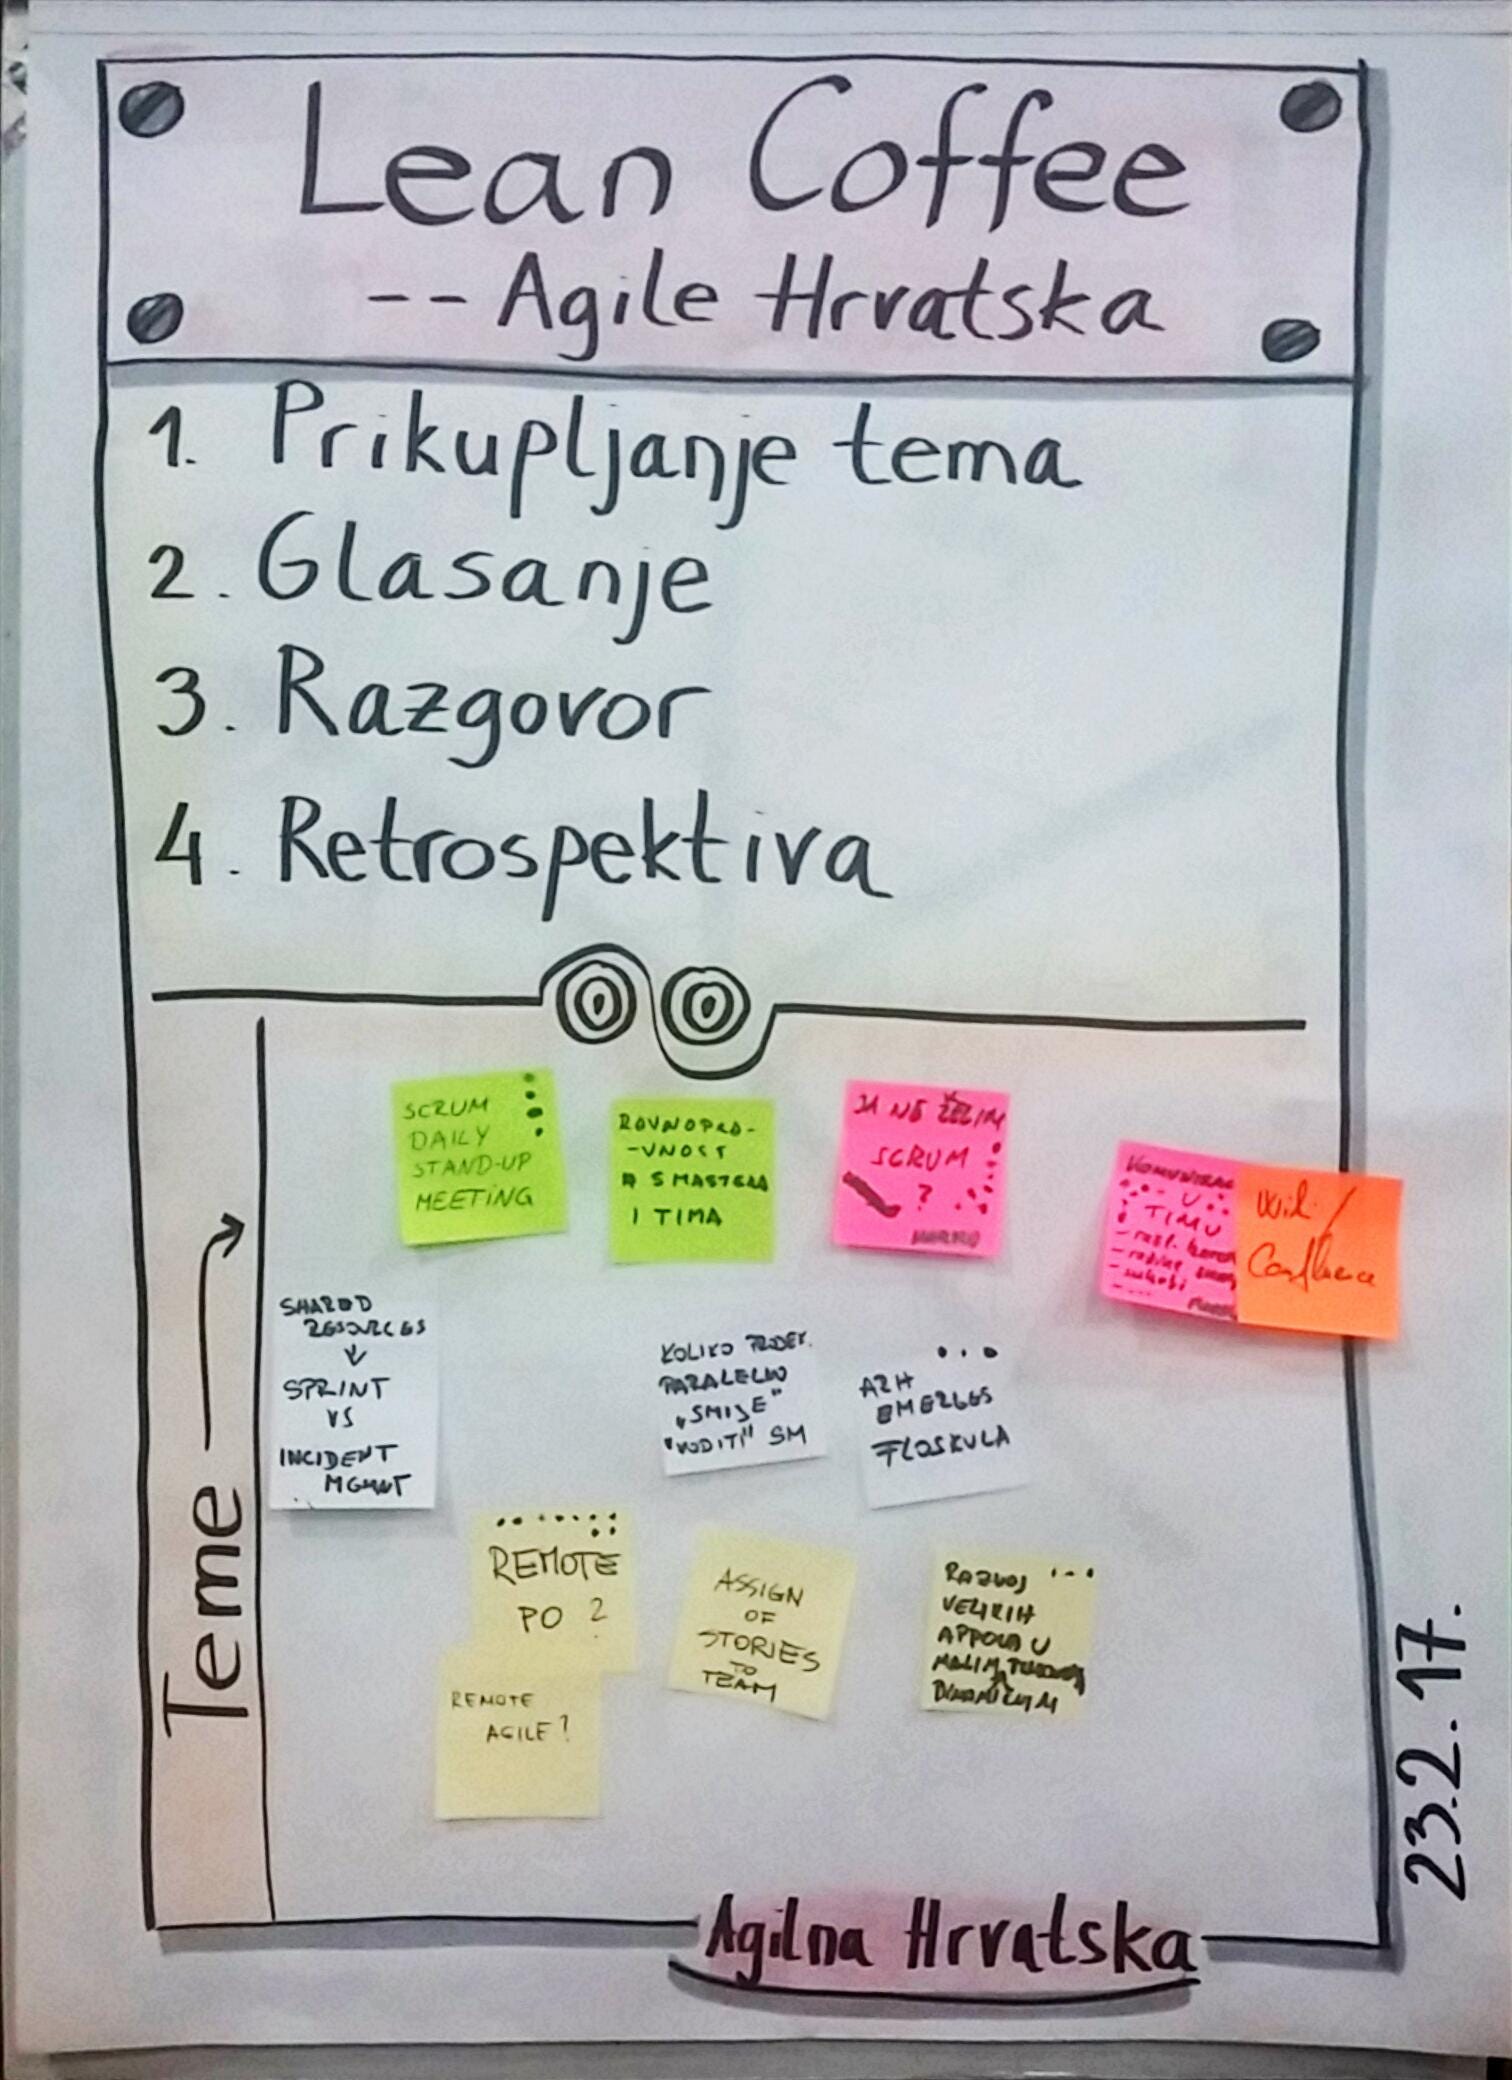 Lean Coffee
-- Agile Hrvatska
1. Prikupljanje tema
2. Glasanje
3. Razgovor
4. Retrospektiva
Teme
SCRUM
DAILY
STAND-UP
MEETING
ROVNOPRA-
-VNOST
S MASTERA
I TIMA
JA NE ŽELIM
SCRUM
?
MARKO
U
TIMU
Wiki /
Confluence
SHARED
RESOURCES
SPRINT
VS
INCIDENT
MGMNT
KOLIKO
PARALELNO
„SMIJE"
"VODITI" SM
AZH
EMERGES
FLOSKULA
REMOTE
PO ?
REMOTE
AGILE?
ASSIGN
OF
STORIES
TO
TEAM
RAZVOJ
VELIKIH
U
MALIM
Agilna Hrvatska
23.2.17.